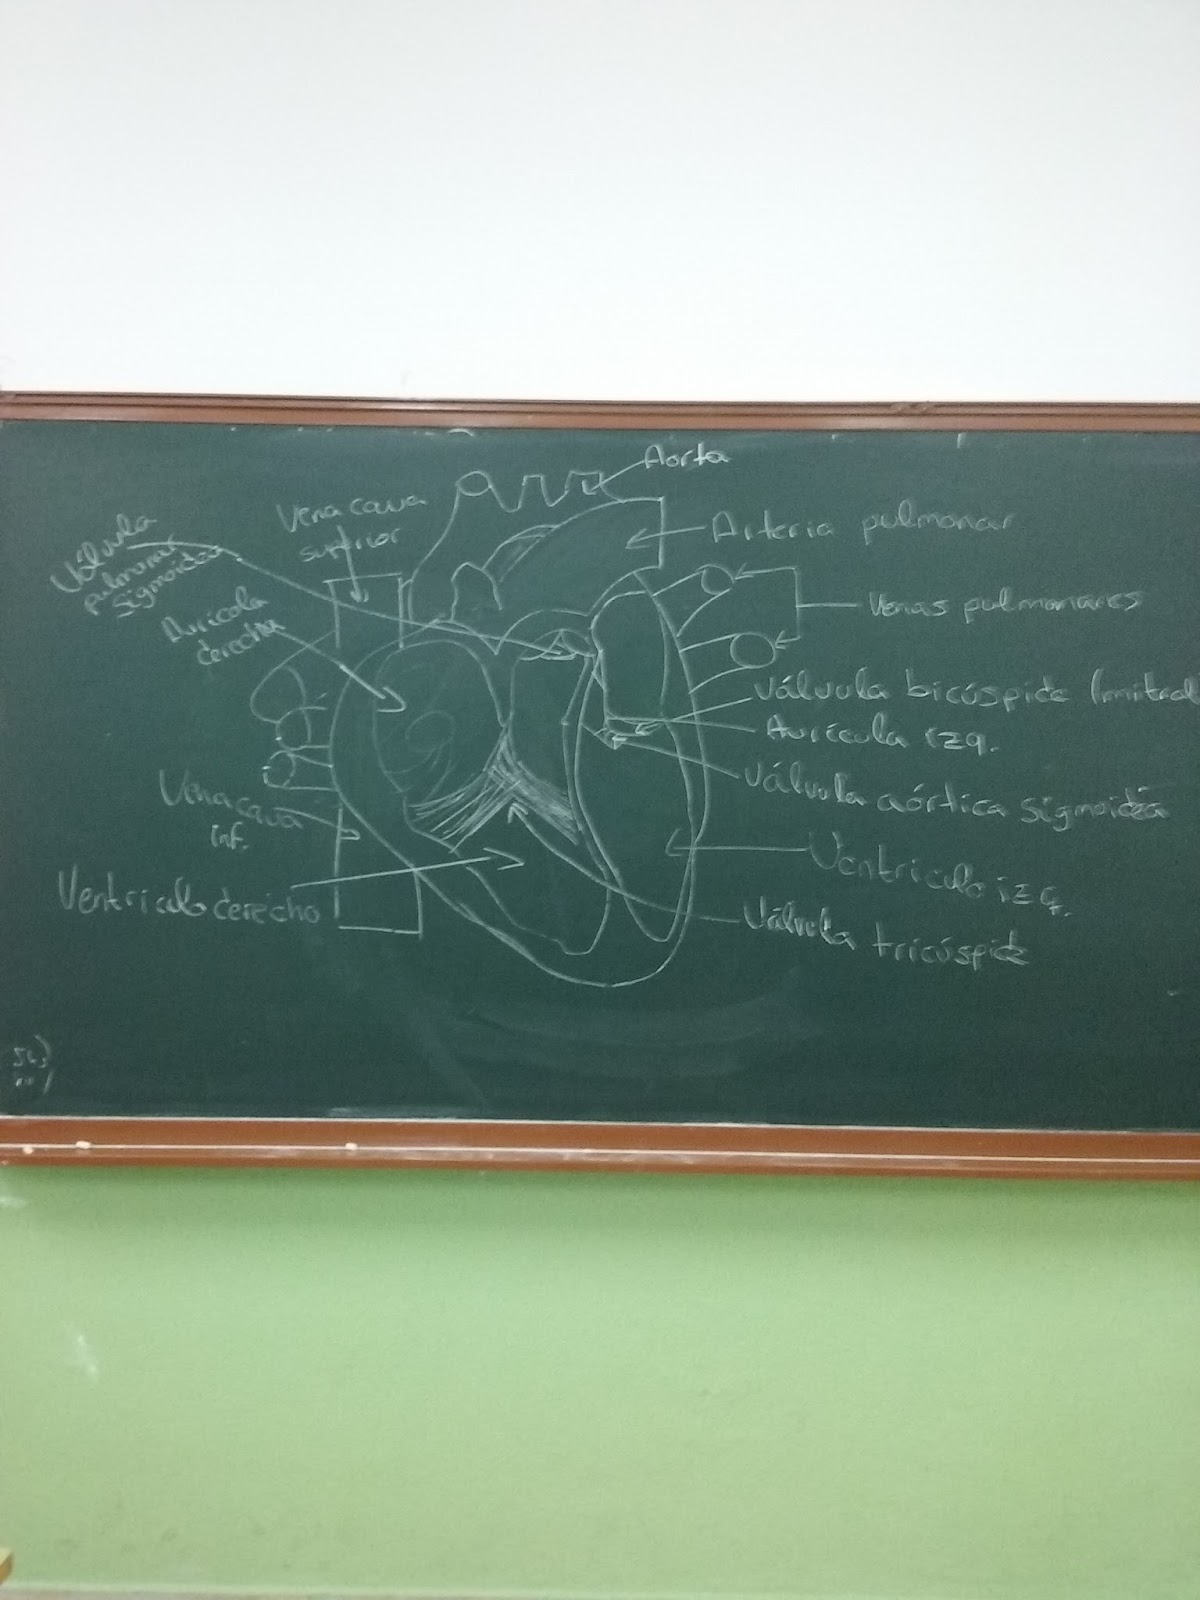 Aorta
Vena cava
superior
Arteria pulmonar
Válvula
pulmonar
sigmoidea
Aurícola
derecha
Venas pulmonares
Válvula bicúspide (mitral
Aurícula izq.
Válvula aórtica sigmoidea
Vena cava
inf.
Ventrículo izq.
Ventriculo derecho
Válvula tricúspide